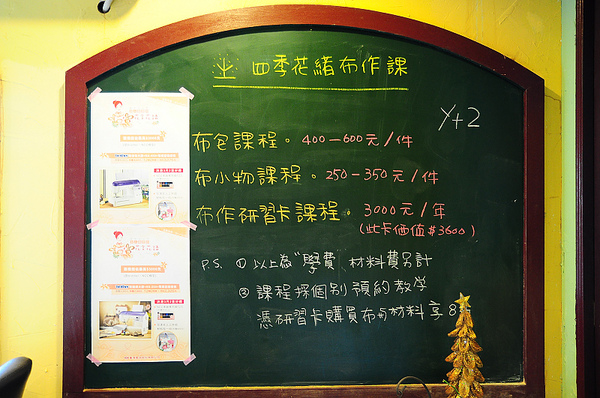 四季花緒布作課
y+2
布包課程。400-600元/件
布小物課程。250-350元/件
布作研習卡課程。3000元/年
(此卡価值$3600)
P.S. ①以上為"學費"材料費另計
②課程採個別預約教学
憑研習卡購買布与材料享8